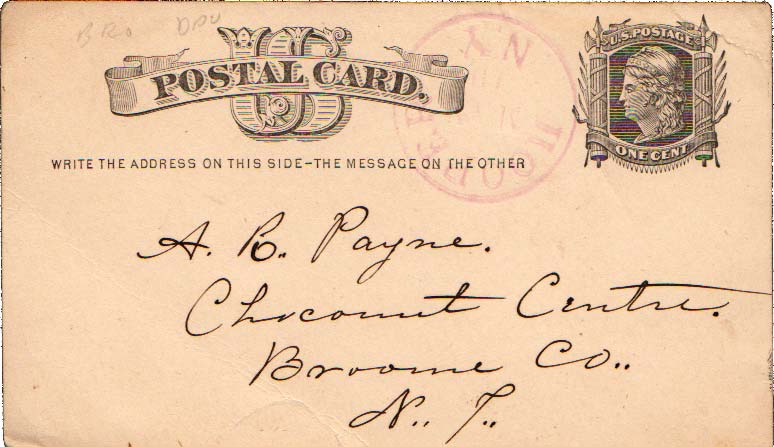 BRO DPU
POSTAL CARD.
U.S. POSTAGE
ONE CENT
N Y
WRITE THE ADDRESS ON THIS SIDE-THE MESSAGE ON THE OTHER
A. R. Payne.
Choconut Centre.
Broome Co..
N.. Y..